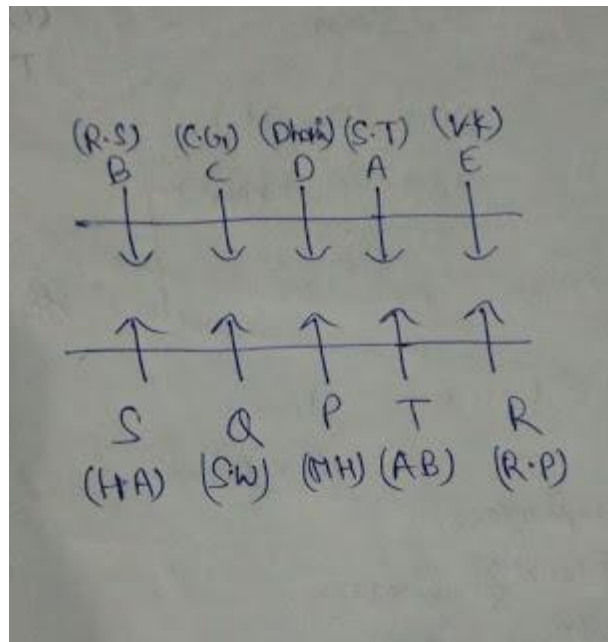 (R.S) (C.G) (Dhoni) (S.T) (V.K)
B C D A E
S Q P T R
(H.A) (S.W) (MH) (AB) (R.P)